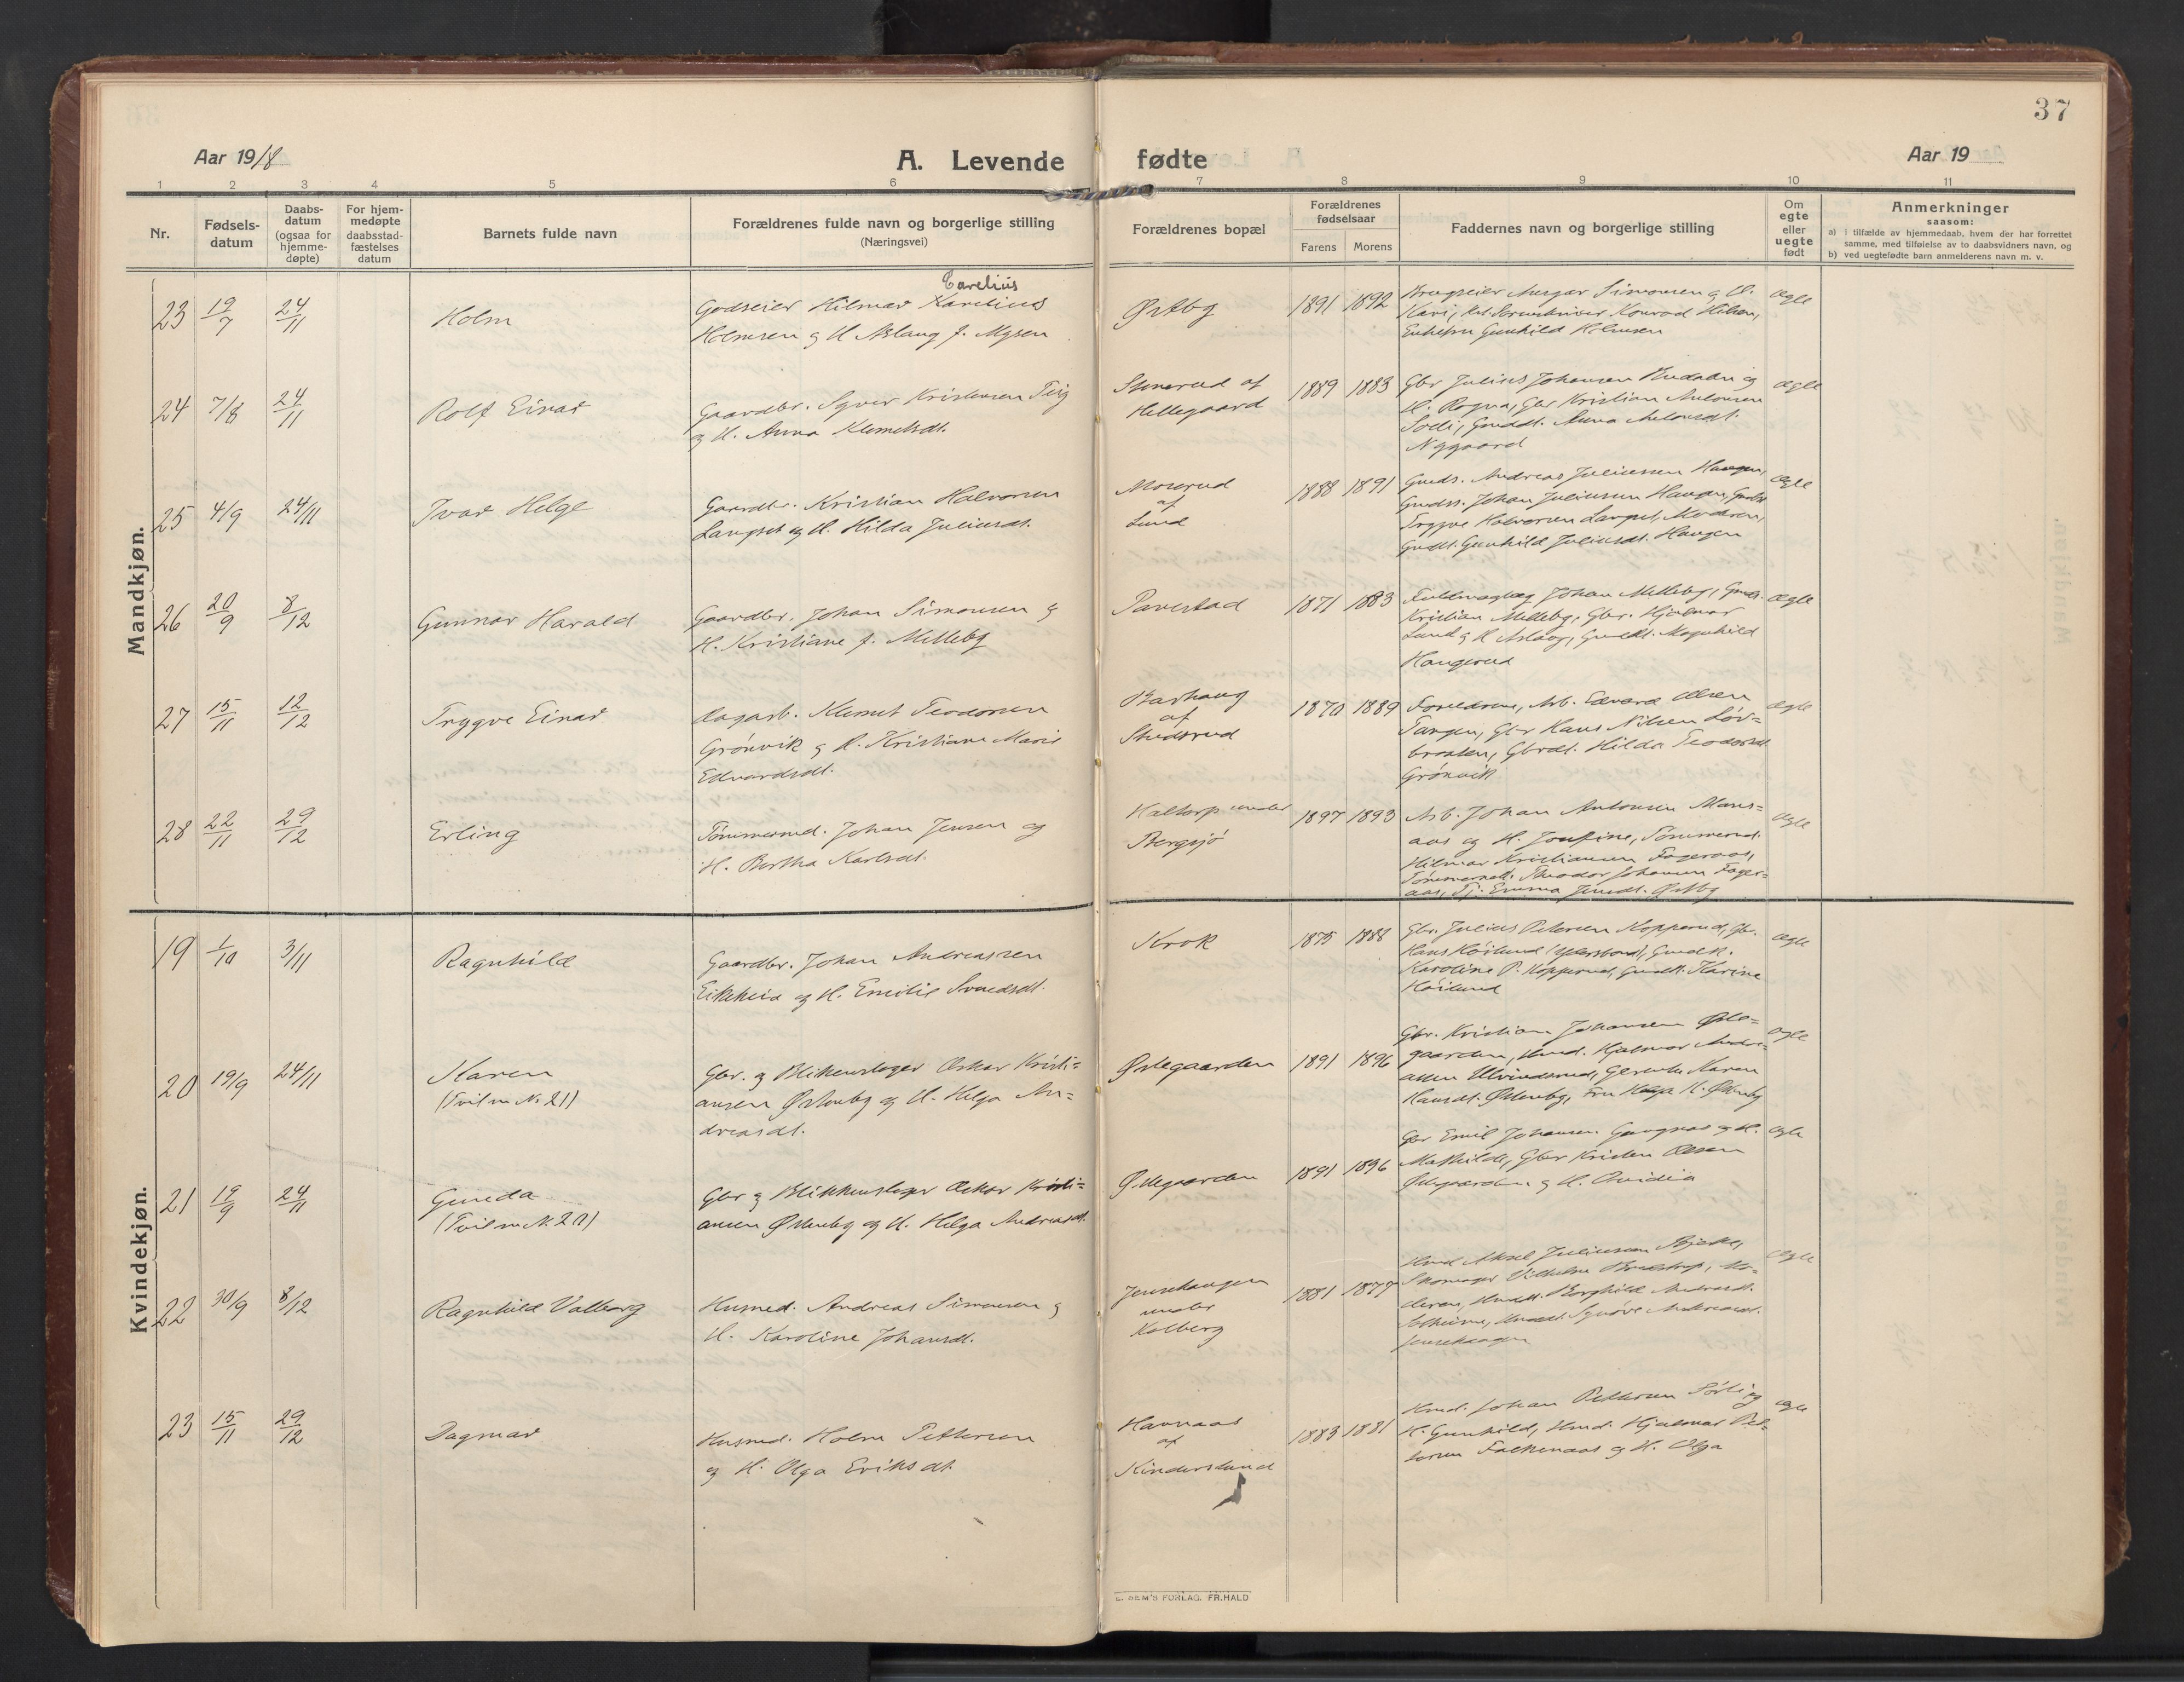 37
Aar 1918
A. Levende fødte
Aar 19
1 2 3 4 5 6 7 8 9 10 11
Nr.
Fødsels-
datum
Daabs-
datum
(ogsaa for
hjemme-
døpte)
For hjem-
medøpte
daabsstad-
fæstelses
datum
Barnets fulde navn
Forældrenes fulde navn og borgerlige stilling
(Næringsvei)
Forældrenes bopæl
Forældrenes
fødselsaar
Farens Morens
Faddernes navn og borgerlige stilling
Om
egte
eller
uegte
født
Anmerkninger
saasom:
a) i tilfælde av hjemmedaab, hvem der har forrettet
samme, med tilføielse av to daabsvidners navn, og
b) ved uegtefødte barn anmelderens navn m. v.
Mandkjøn.
23 19/7 24/11
Holm
Carelius
Godseier Hilmar Karelius
Holmsen og H. Aslaug f. Mysen
Østby
1891 1892
Brugseier Simonsen og H.
Kari, Konrad Nilsen,
Gunhild Holmsen
ægte
24 7/8 24/11
Rolf Einar
Gaardbr. Syver Kristensen Teig
og H. Anna Klemetsdt.
Stenerud af
Hellegaard
1889 1883
Gbr Julius Johansen og
H. Ragna, Gbr Kristian Antonsen
Anna
Nygaard
ægte
25 4/9 24/11
Ivar Helge
Gaardbr. Kristian Halvorsen
Langset og H. Hilda Juliusdt.
Moserud
af
Lund
1888 1891
Gmds. Andreas Juliussen Haugen,
Gmdss. Johan Juliussen Haugen,
Trygve Halvorsen Langset, Moderen,
Gmdt. Gunhild Juliusdt. Haugen
ægte
26 20/9 8/12
Gunnar Harald
Gaardbr. Johan Simonsen og
H. Kristiane f. Melleby
Tavestad
1871 1883
Johan Melleby,
Kristian Melleby, Gbr. Hjalmar
Lund og H Aslaug, Magnhild
Haugerud
ægte
27 15/11 12/12
Trygve Einar
Dagarb. Klemet Teodorsen
Grønvik og H. Kristiane Marie
Edvardsdt.
Barhaug
af
Studsrud
1870 1889
Forældrene, Arb. Edvard Olsen
Tangen, Gbr Hans Nilsen Løv-
braaten, Gbrdt. Hilda Teodorsdt.
Grønvik
ægte
28 22/11 29/12
Erling
Tømmermd. Johan Jensen og
H. Bertha Karlsdt.
Haltorp under
Bergsjø
1897 1893
Arb. Johan Antonsen Mans-
aas og H. Josefine, Tømmermd.
Hilmar Kristiansen Fageraas,
Theodor Johansen Fager-
aas, Tj. Emma Jensdt. Østby
ægte
Kvindekjøn.
19 1/10 3/11
Ragnhild
Gaardbr. Johan Andreassen
Eikheia og H. Emilie Svendsdt.
Krok
1875 1888
Gbr. Julius Petersen Kopperud, Gbr.
Hans Høilund
Karoline P. Kopperud, Karine
Høilund
ægte
20 19/9 24/11
Karen
(Tvil m N. 21)
Gbr. og Blikenslager Oskar Kristi-
ansen Østenby og H. Helga An-
dreasdt.
Østegaarden
1891 1896
Gbr. Kristian Johansen Øste-
gaarden, Hjalmar Andre-
assen Karen
Hansdt. Østenby, Fru Helga H. Østenby
ægte
21 19/9 24/11
Guneda
(Tvil m N. 20)
Gbr og Blikkenslager Oskar Kristi-
ansen Østenby og H. Helga Andreasdt.
Østegaarden
1891 1896
Gbr Emil Johansen og H.
Mathilde, Gbr Kristen Olsen
Østegaarden og H. Ovidia
ægte
22 30/9 8/12
Ragnhild Valborg
Husmd. Andreas Simonsen og
H. Karoline Johansdt.
Jensehaugen
under
Kolberg
1881 1877
Aksel Juliussen Bjerke,
Skomager Vilhelm Mo-
deren, Borghild
Solheim, Synøve Andreasdt.
Jensehaugen
ægte
23 15/11 29/12
Dagmar
Husmd. Holm Pettersen
og H. Olga Eriksdt.
Havnaas
af
Kinderslund
1883 1881
Husmd. Johan Pettersen Sørli og
H. Gunhild, Husmd. Hjalmar Pet-
tersen Falkenaas og H. Olga
ægte
E. SEM'S FORLAG. FR.HALD